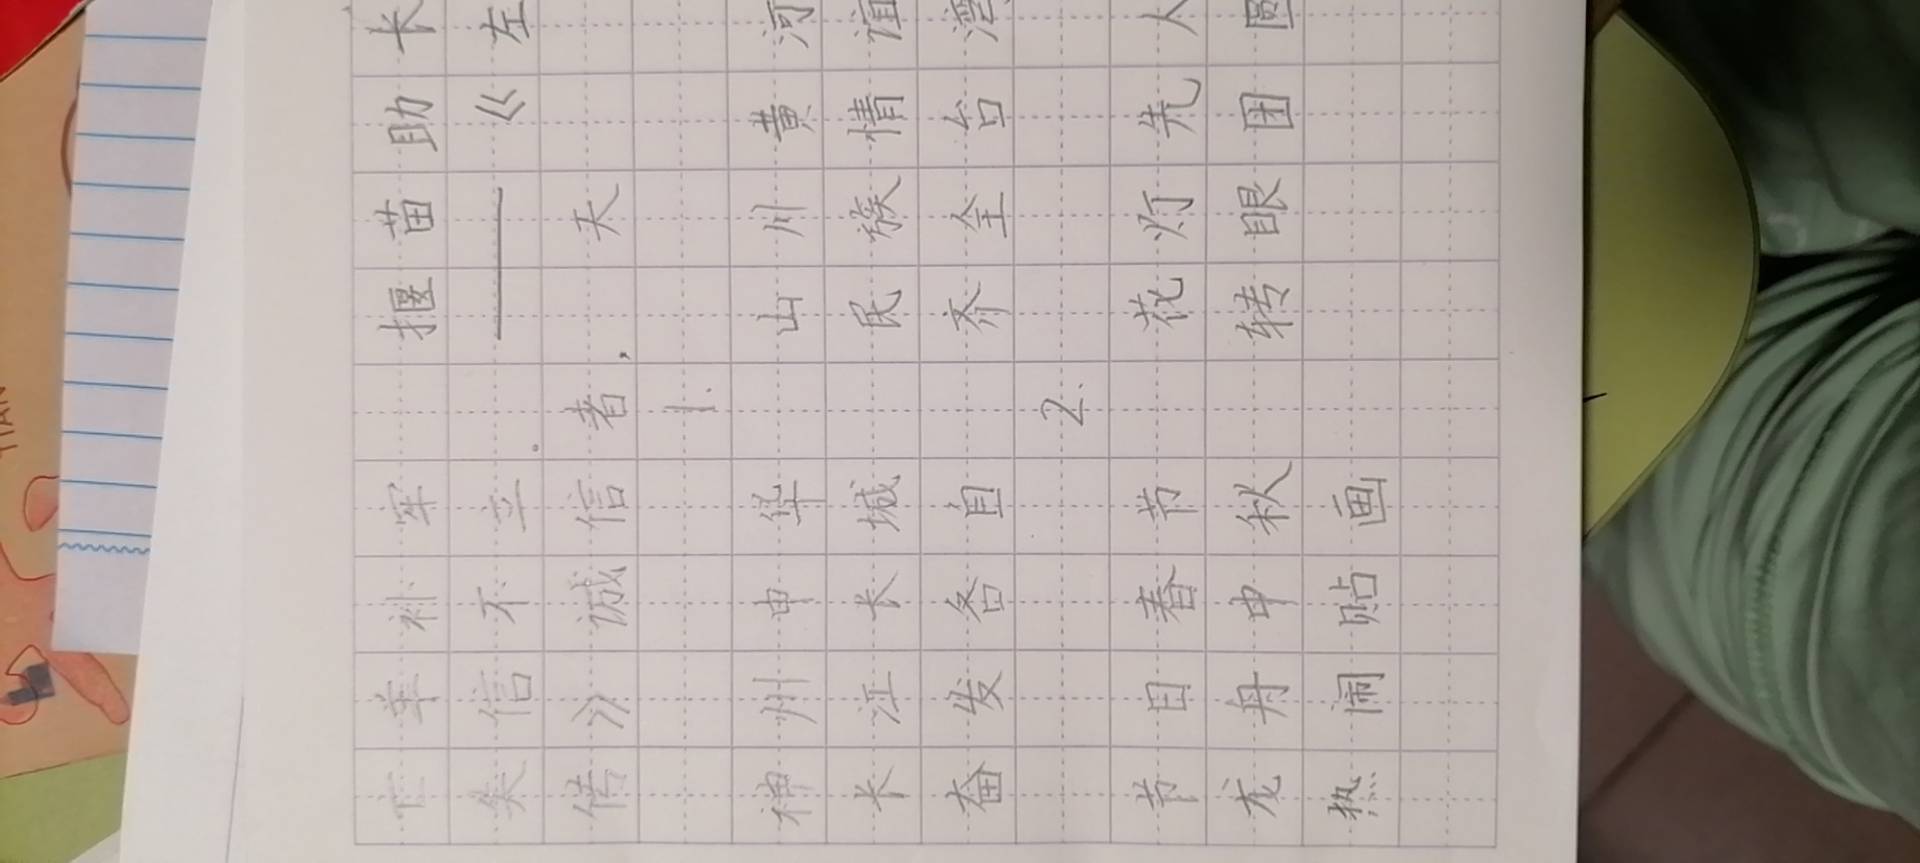 亡羊补牢 揠苗助长
失信不立。——《左
传》诚信者,天
1.
神州中华 山川黄河
长江长城 民族情谊
奋发各自 齐全台湾
2.
节日春节 花灯先人
龙舟中秋 转眼团圆
热闹贴画
TIAN